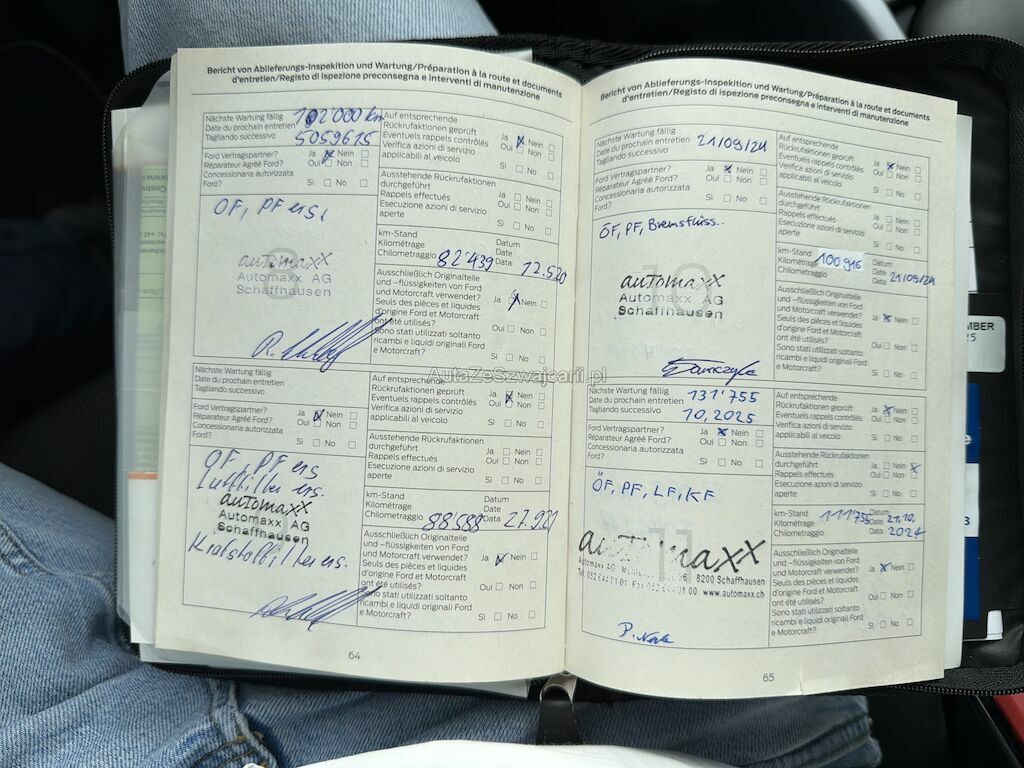 Bericht von Ablieferungs-Inspekition und Wartung/Préparation à la route et documents
d'entretien/Registo di ispezione preconsegna e interventi di manutenzione
Nächste Wartung fällig 102'000 km
Date du prochain entretien
Tagliando successivo
Auf entsprechende
Rückrufaktionen geprüft Ja Nein
Eventuels rappels contrôlés Oui Non
Verifica azioni di servizio
applicabili al veicolo Sì No
Ford Vertragspartner? Ja Nein
Réparateur Agréé Ford? Oui Non
Concessionaria autorizzata
Ford? Sì No
Ausstehende Rückrufaktionen
durchgeführt Ja Nein
Rappels effectués Oui Non
Esecuzione azioni di servizio
aperte Sì No
ÖF, PF ers,
8
automaxx
Automaxx AG
Schaffhausen
km-Stand Datum
Kilométrage Date
Chilometraggio 82'439 Data 12.5.20
Ausschließlich Originalteile
und –flüssigkeiten von Ford
und Motorcraft verwendet? Ja Nein
Seuls des pièces et liquides
d'origine Ford et Motorcraft
ont été utilisés? Oui Non
Sono stati utilizzati soltanto
ricambi e liquidi originali Ford
e Motorcraft? Sì No
AutaZeSzwajcarii.pl
Nächste Wartung fällig
Date du prochain entretien
Tagliando successivo
Auf entsprechende
Rückrufaktionen geprüft Ja Nein
Eventuels rappels contrôlés Oui Non
Verifica azioni di servizio
applicabili al veicolo Sì No
Ford Vertragspartner? Ja Nein
Réparateur Agréé Ford? Oui Non
Concessionaria autorizzata
Ford? Sì No
Ausstehende Rückrufaktionen
durchgeführt Ja Nein
Rappels effectués Oui Non
Esecuzione azioni di servizio
aperte Sì No
ÖF, PF ers
Luftfilter ers.
automaxx
Automaxx AG
Schaffhausen
Kraftstoffilter ers.
km-Stand Datum
Kilométrage Date
Chilometraggio 88'588 Data 27.9.21
Ausschließlich Originalteile
und –flüssigkeiten von Ford
und Motorcraft verwendet? Ja Nein
Seuls des pièces et liquides
d'origine Ford et Motorcraft
ont été utilisés? Oui Non
Sono stati utilizzati soltanto
ricambi e liquidi originali Ford
e Motorcraft? Sì No
64
Bericht von Ablieferungs-Inspekition und Wartung/Préparation à la route et documents
d'entretien/Registo di ispezione preconsegna e interventi di manutenzione
Nächste Wartung fällig
Date du prochain entretien 21/09/24
Tagliando successivo
Auf entsprechende
Rückrufaktionen geprüft Ja Nein
Eventuels rappels contrôlés Oui Non
Verifica azioni di servizio
applicabili al veicolo Sì No
Ford Vertragspartner? Ja Nein
Réparateur Agréé Ford? Oui Non
Concessionaria autorizzata
Ford? Sì No
Ausstehende Rückrufaktionen
durchgeführt Ja Nein
Rappels effectués Oui Non
Esecuzione azioni di servizio
aperte Sì No
ÖF, PF, Bremsflüss..
10
automaxx
Automaxx AG
Schaffhausen
km-Stand Datum
Kilométrage 100 916 Date
Chilometraggio Data 21/09/24
Ausschließlich Originalteile
und –flüssigkeiten von Ford
und Motorcraft verwendet? Ja Nein
Seuls des pièces et liquides
d'origine Ford et Motorcraft
ont été utilisés? Oui Non
Sono stati utilizzati soltanto
ricambi e liquidi originali Ford
e Motorcraft? Sì No
Nächste Wartung fällig 131'755
Date du prochain entretien
Tagliando successivo 10,2025
Auf entsprechende
Rückrufaktionen geprüft Ja Nein
Eventuels rappels contrôlés Oui Non
Verifica azioni di servizio
applicabili al veicolo Sì No
Ford Vertragspartner? Ja Nein
Réparateur Agréé Ford? Oui Non
Concessionaria autorizzata
Ford? Sì No
Ausstehende Rückrufaktionen
durchgeführt Ja Nein
Rappels effectués Oui Non
Esecuzione azioni di servizio
aperte Sì No
ÖF, PF, LF, KF
11
automaxx
Automaxx AG 96 8200 Schaffhausen
www.automaxx.ch
km-Stand 111'755 Datum 21.10.
Kilométrage Date 2024
Chilometraggio Data
Ausschließlich Originalteile
und –flüssigkeiten von Ford
und Motorcraft verwendet? Ja Nein
Seuls des pièces et liquides
d'origine Ford et Motorcraft
ont été utilisés? Oui Non
Sono stati utilizzati soltanto
ricambi e liquidi originali Ford
e Motorcraft? Sì No
65